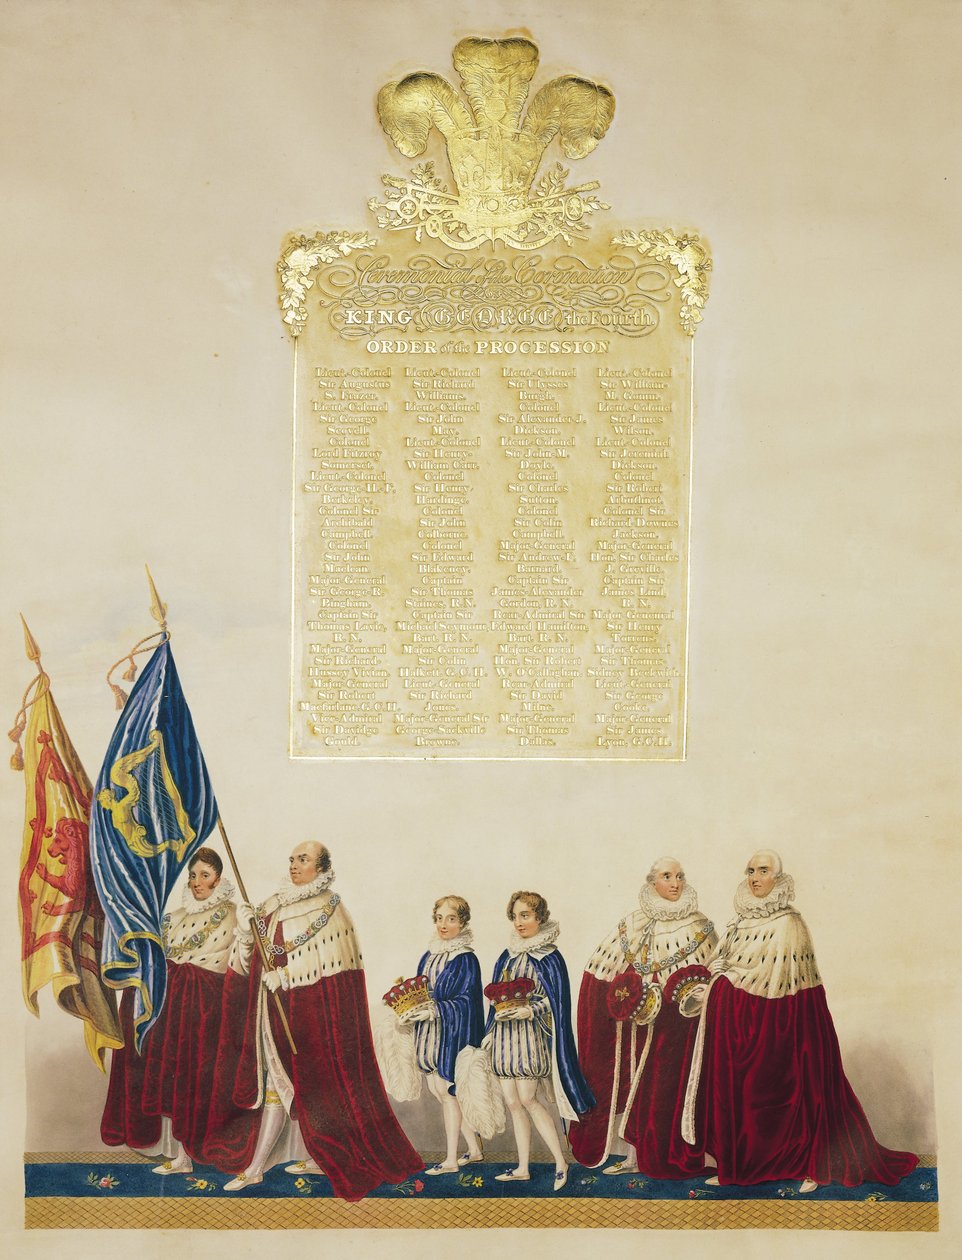 Ceremonial of the Coronation
KING GEORGE the Fourth.
ORDER of the PROCESSION
Lieut.-Colonel
Sir Augustus
S. Frazer.
Lieut.-Colonel
Sir George
Scovell.
Colonel
Lord Fitzroy
Somerset.
Lieut.-Colonel
Sir George H.F.
Berkeley.
Colonel Sir
Archibald
Campbell.
Colonel
Sir John
Maclean.
Major-General
Sir George R.
Bingham.
Captain Sir
Thomas
R. N.
Major-General
Sir Richard
Hussey Vivian.
Major-General
Sir Robert
Macfarlane G.C.H.
Vice-Admiral
Sir Davidge
Gould.
Lieut.-Colonel
Sir Richard
Williams.
Lieut.-Colonel
Sir John
May.
Lieut.-Colonel
Sir Henry
William Carr.
Colonel
Sir Henry
Hardinge.
Colonel
Sir John
Colborne.
Colonel
Sir Edward
Blakeney.
Captain
Sir Thomas
Staines, R.N.
Captain Sir
Michael Seymour,
Bart. R.N.
Major-General
Sir Colin
Halkett G.C.H.
Lieut.-General
Sir Richard
Jones.
Major-General Sir
George Sackville
Browne.
Lieut.-Colonel
Sir Ulysses
Burgh.
Colonel
Sir Alexander J.
Dickson.
Lieut.-Colonel
Sir John M.
Doyle.
Colonel
Sir Charles
Sutton.
Colonel
Sir Colin
Campbell.
Major-General
Sir Andrew F.
Barnard.
Captain Sir
James Alexander
Gordon, R.N.
Rear Admiral Sir
Edward Hamilton,
Bart. R.N.
Major-General
Hon. Sir Robert
W. O'Callaghan.
Rear Admiral
Sir David
Milne.
Major-General
Sir Thomas
Dallas.
Lieut.-Colonel
Sir William
M. Gomm.
Lieut.-Colonel
Sir James
Wilson.
Lieut.-Colonel
Sir Jeremiah
Dickson.
Colonel
Sir Robert
Arbuthnot.
Colonel Sir
Richard Downes
Jackson.
Major-General
Hon. Sir Charles
J. Greville.
Captain Sir
James Lind,
R.N.
Major General
Sir Henry
Torrens.
Major-General
Sir Thomas
Sidney Beckwith.
Lieut.-General
Sir George
Cooke.
Major General
Sir James
Lyon, G.C.H.